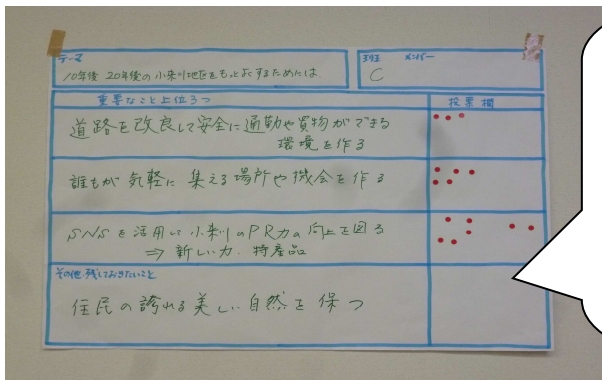 テーマ
10年後 20年後の小来川地区をもっとよくするためには
班 メンバー
C
重要なこと上位3つ
投票欄
道路を改良して安全に通勤や買物ができる
環境を作る
誰もが気軽に集える場所や機会を作る
SNSを活用して小来川のPR力の向上を図る
⇒ 新しい力、特産品
その他残しておきたいこと
住民の誇れる美しい自然を保つ